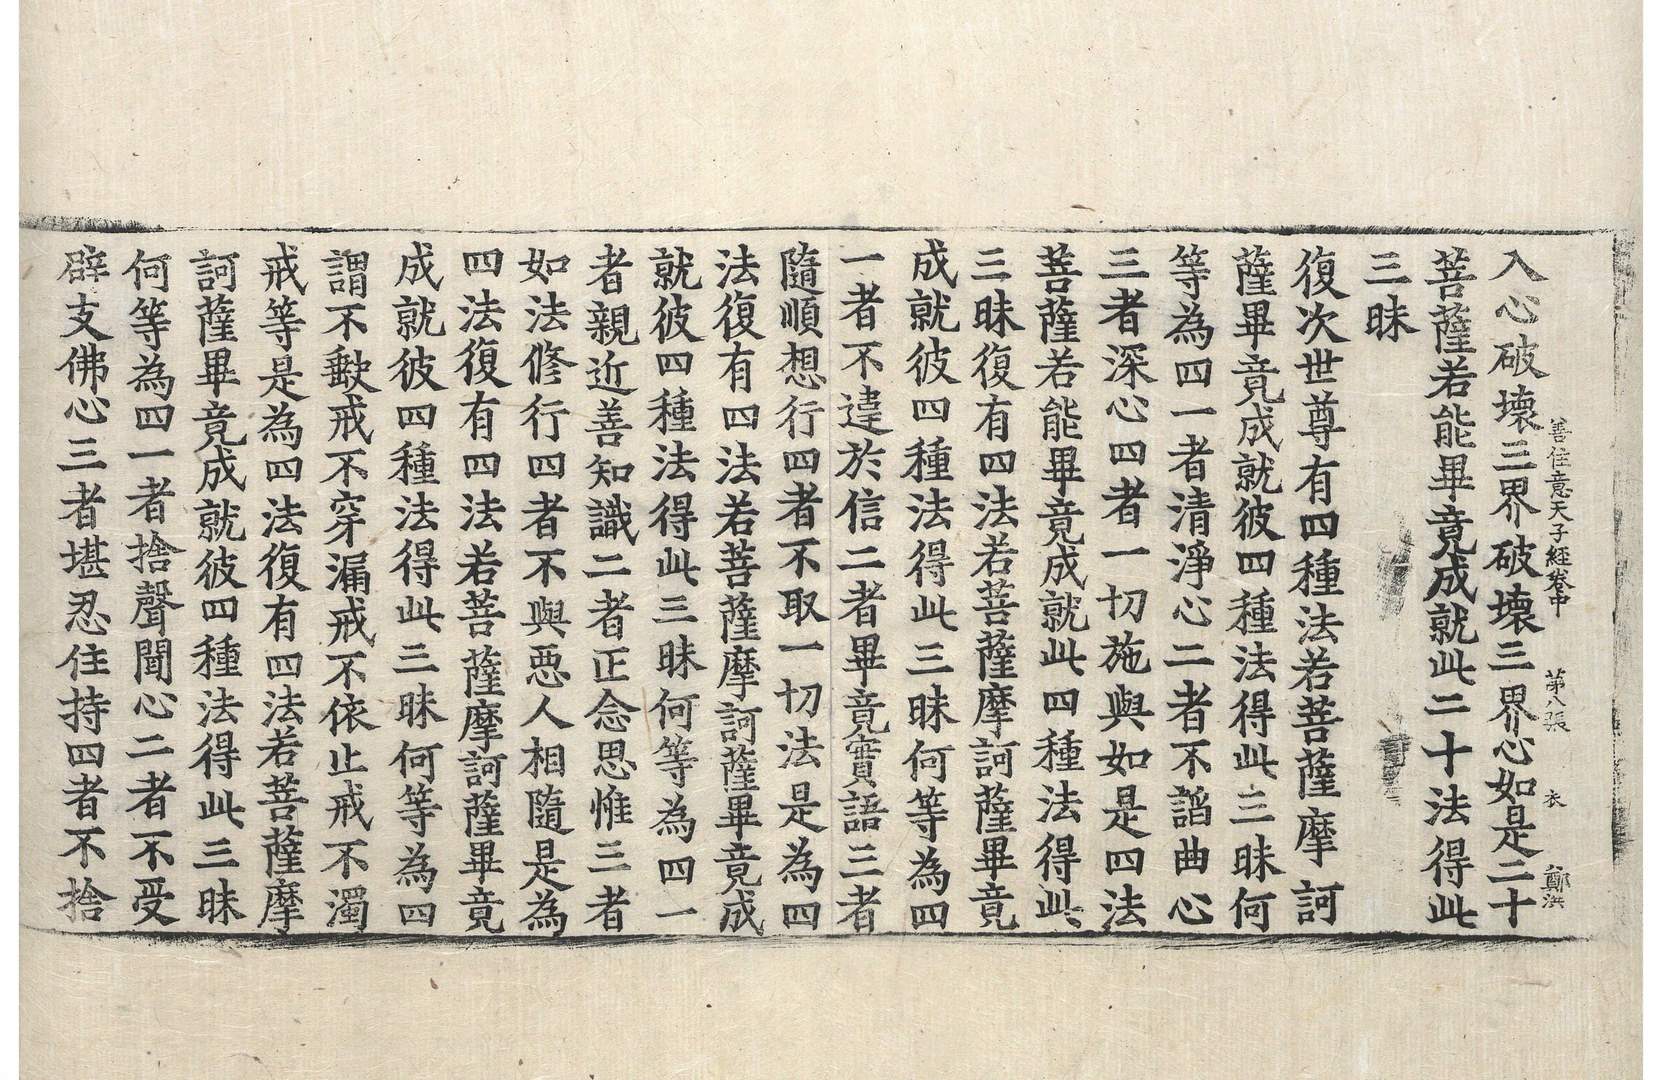 善住意天子經卷中 第八張 衣 鄭洪
入心破壞三界破壞三界心如是二十
菩薩若能畢竟成就此二十法得此
三昧
復次世尊有四種法若菩薩摩訶
薩畢竟成就彼四種法得此三昧何
等為四一者清淨心二者不諂曲心
三者深心四者一切施與如是四法
菩薩若能畢竟成就此四種法得此
三昧復有四法若菩薩摩訶薩畢竟
成就彼四種法得此三昧何等為四
一者不違於信二者畢竟實語三者
隨順想行四者不取一切法是為四
法復有四法若菩薩摩訶薩畢竟成
就彼四種法得此三昧何等為四一
者親近善知識二者正念思惟三者
如法修行四者不與惡人相隨是為
四法復有四法若菩薩摩訶薩畢竟
成就彼四種法得此三昧何等為四
謂不缺戒不穿漏戒不依止戒不濁
戒等是為四法復有四法若菩薩摩
訶薩畢竟成就彼四種法得此三昧
何等為四一者捨聲聞心二者不受
辟支佛心三者堪忍住持四者不捨